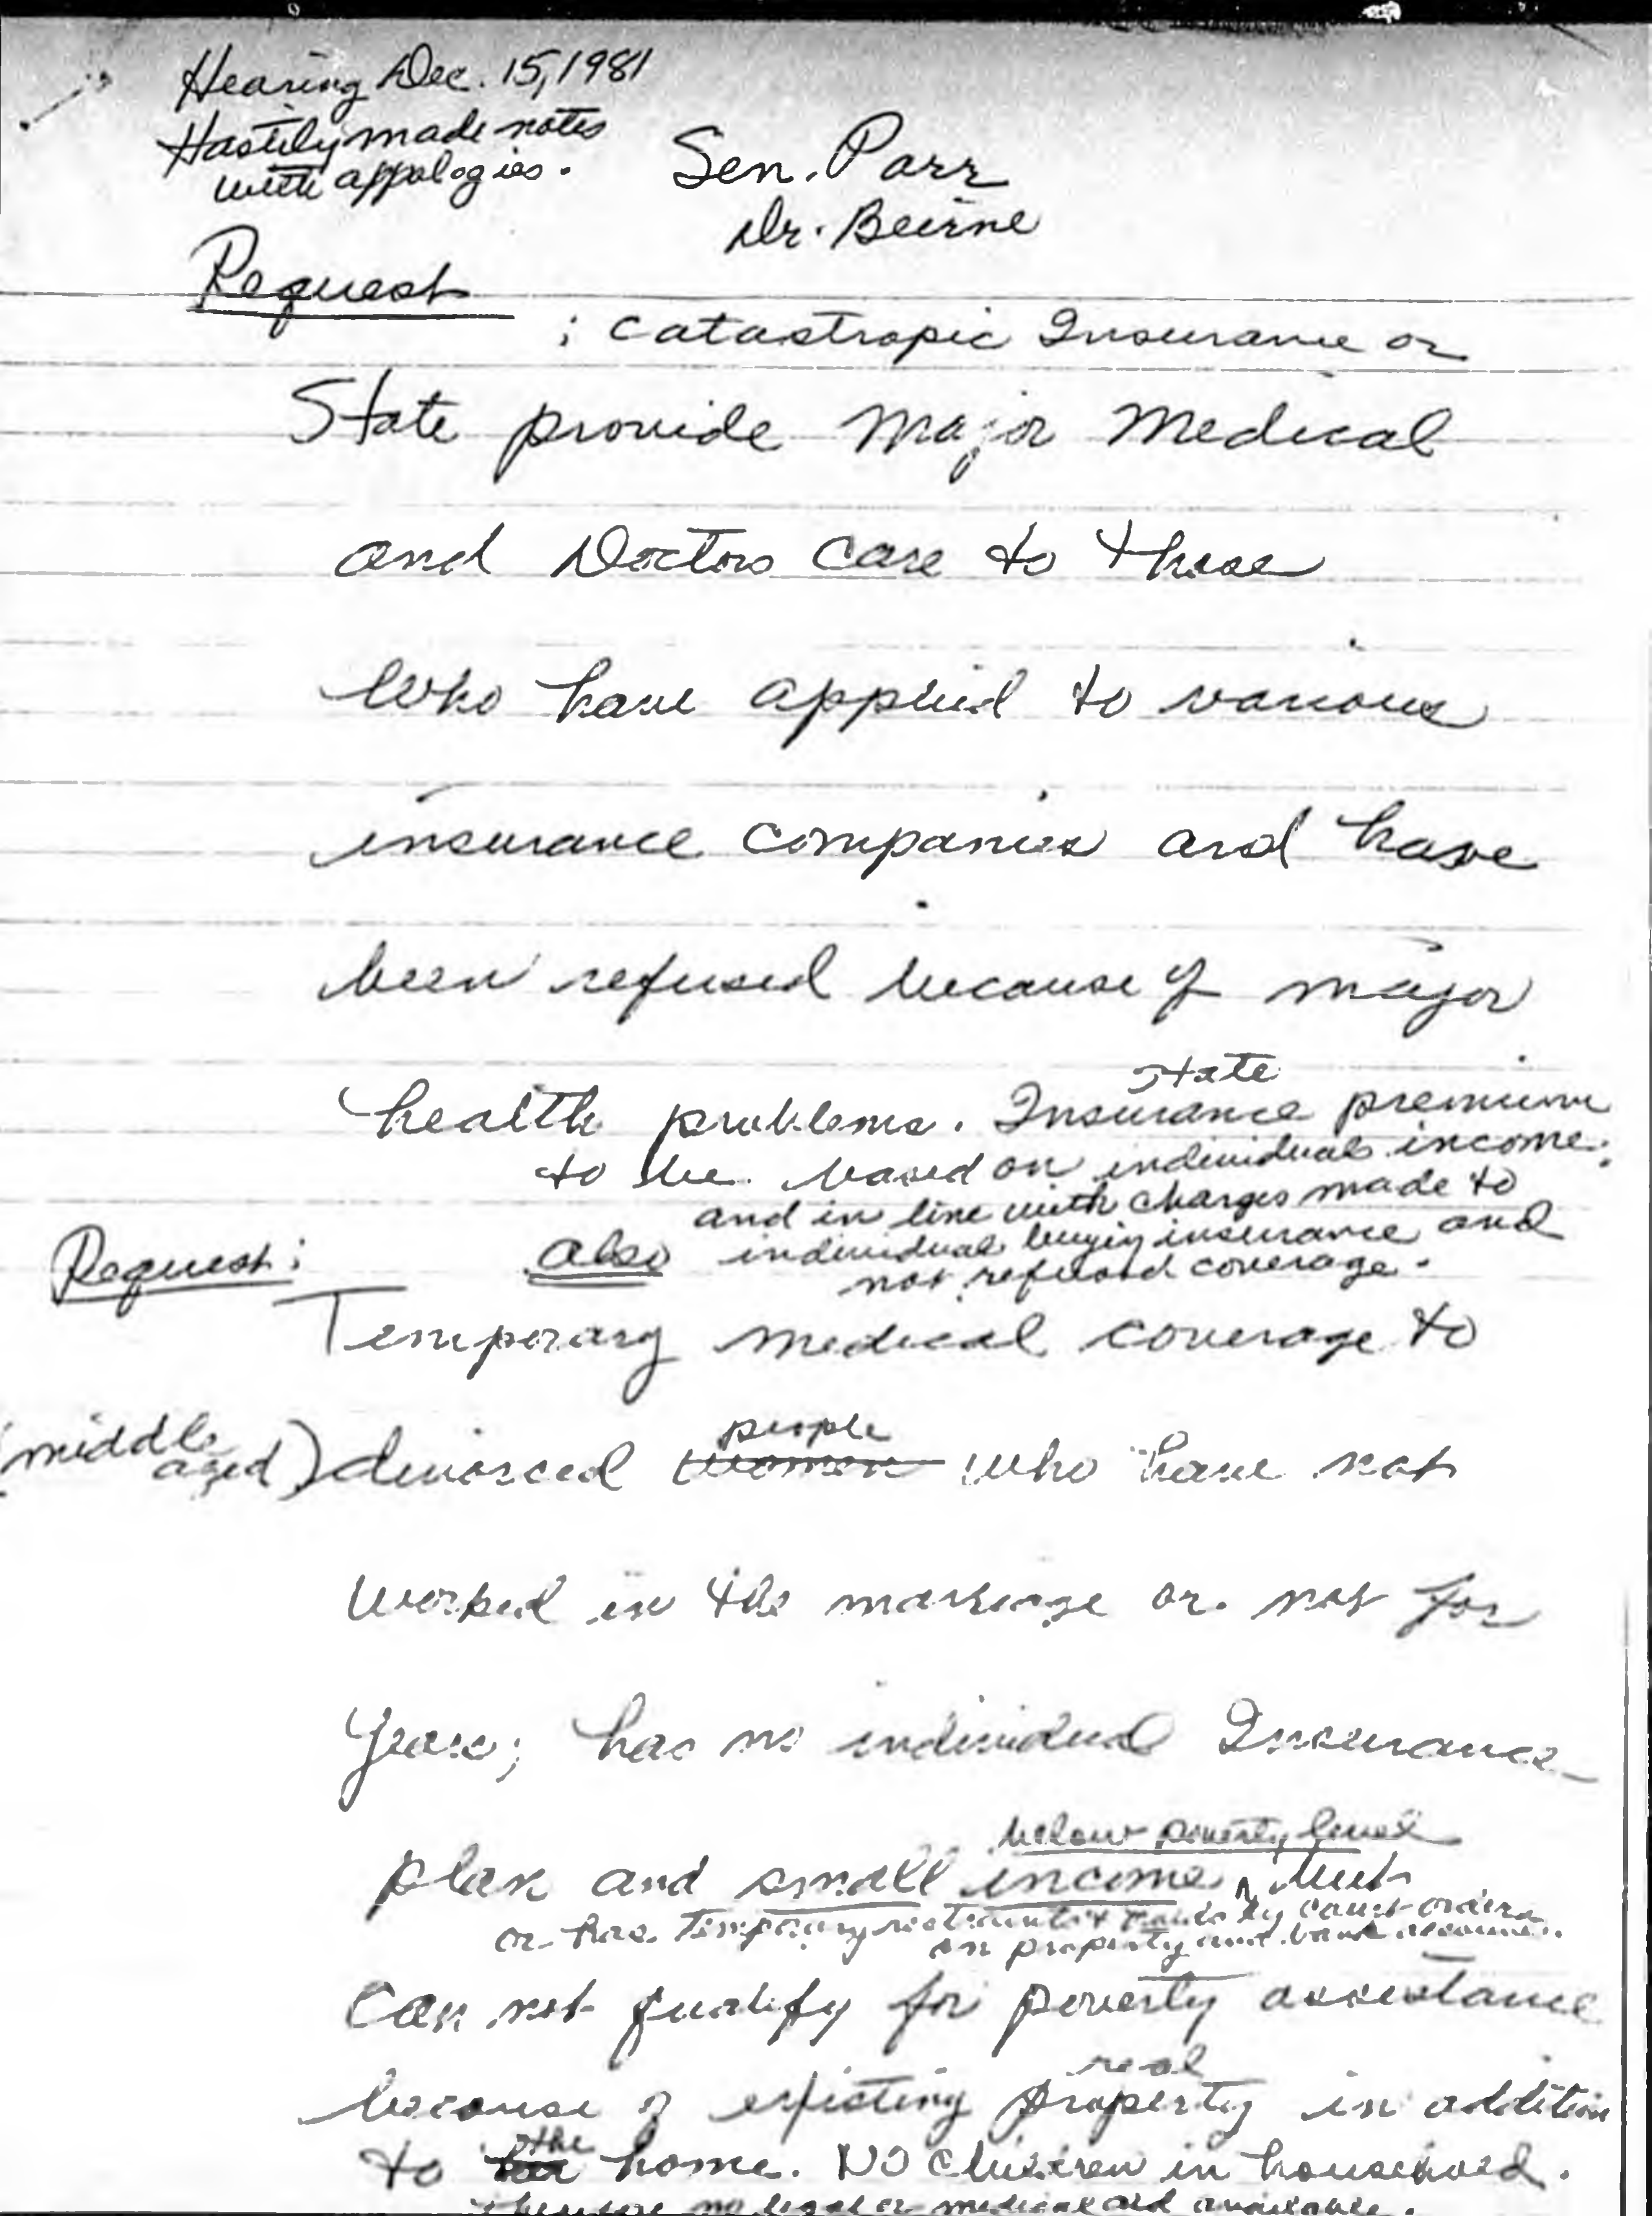 Hearing Dec. 15, 1981
Hastily made notes
with appologies.
Sen. Parr
Dr. Beirne
Request
: Catastropic Insurance or
State provide Major Medical
and Doctors Care to those
Who have applied to various
insurance companies and have
been refused because of major
State
health problems. Insurance premium
to be based on individuals income;
and in line with charges made to
also individuals buying insurance and
not refused coverage.
Request:
Temporary medical coverage to
people
(middle aged) divorced women who have not
worked in the marriage or not for
years; has no individual Insurance
below poverty level
plan and small income, but
or has temporary restraints by court orders
on property and bank accounts.
Can not qualify for poverty assistance
real
because of existing property in addition
the
to her home. NO Children in household.
therefore no legal or medical aid available.